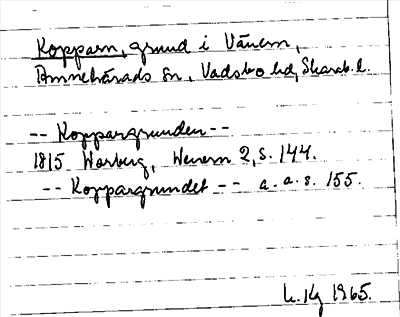 Kopparn, grund i Vänern,
Amnehärads sn, Vadsbo hd, Skarab. l.
-- Koppargrunden --
1815 Warberg, Wenern 2, s. 144.
-- Koppargrundet -- a. a. s. 155.
1965.